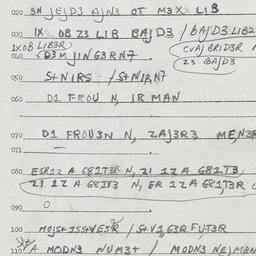 020 3N JEJD3 AJN3 OT M3X LIB
030 IX OB Z3 LIB BAJD3 / BAJD3 LIBZ
IX OB LIB3R CVAJ BRID3R
040 D3M JING3RN7 Z3 BAJD3
050 S+NIRS / S+NIRN7
060 D1 FROU N, IR MAN
070 D1 FROV3N N, ZAJ3R3 MEN3R
071
080 ESR1Z A G81T3R N, Z1 1Z A G81T3,
Z1 1Z A G81T3 N, ER 1Z A G81T3R
090 O
100 MOJS+1SSVESR / S+V1G3R FUT3R
110 A MODN3 NUM3+ / MODN3 NEJM3N